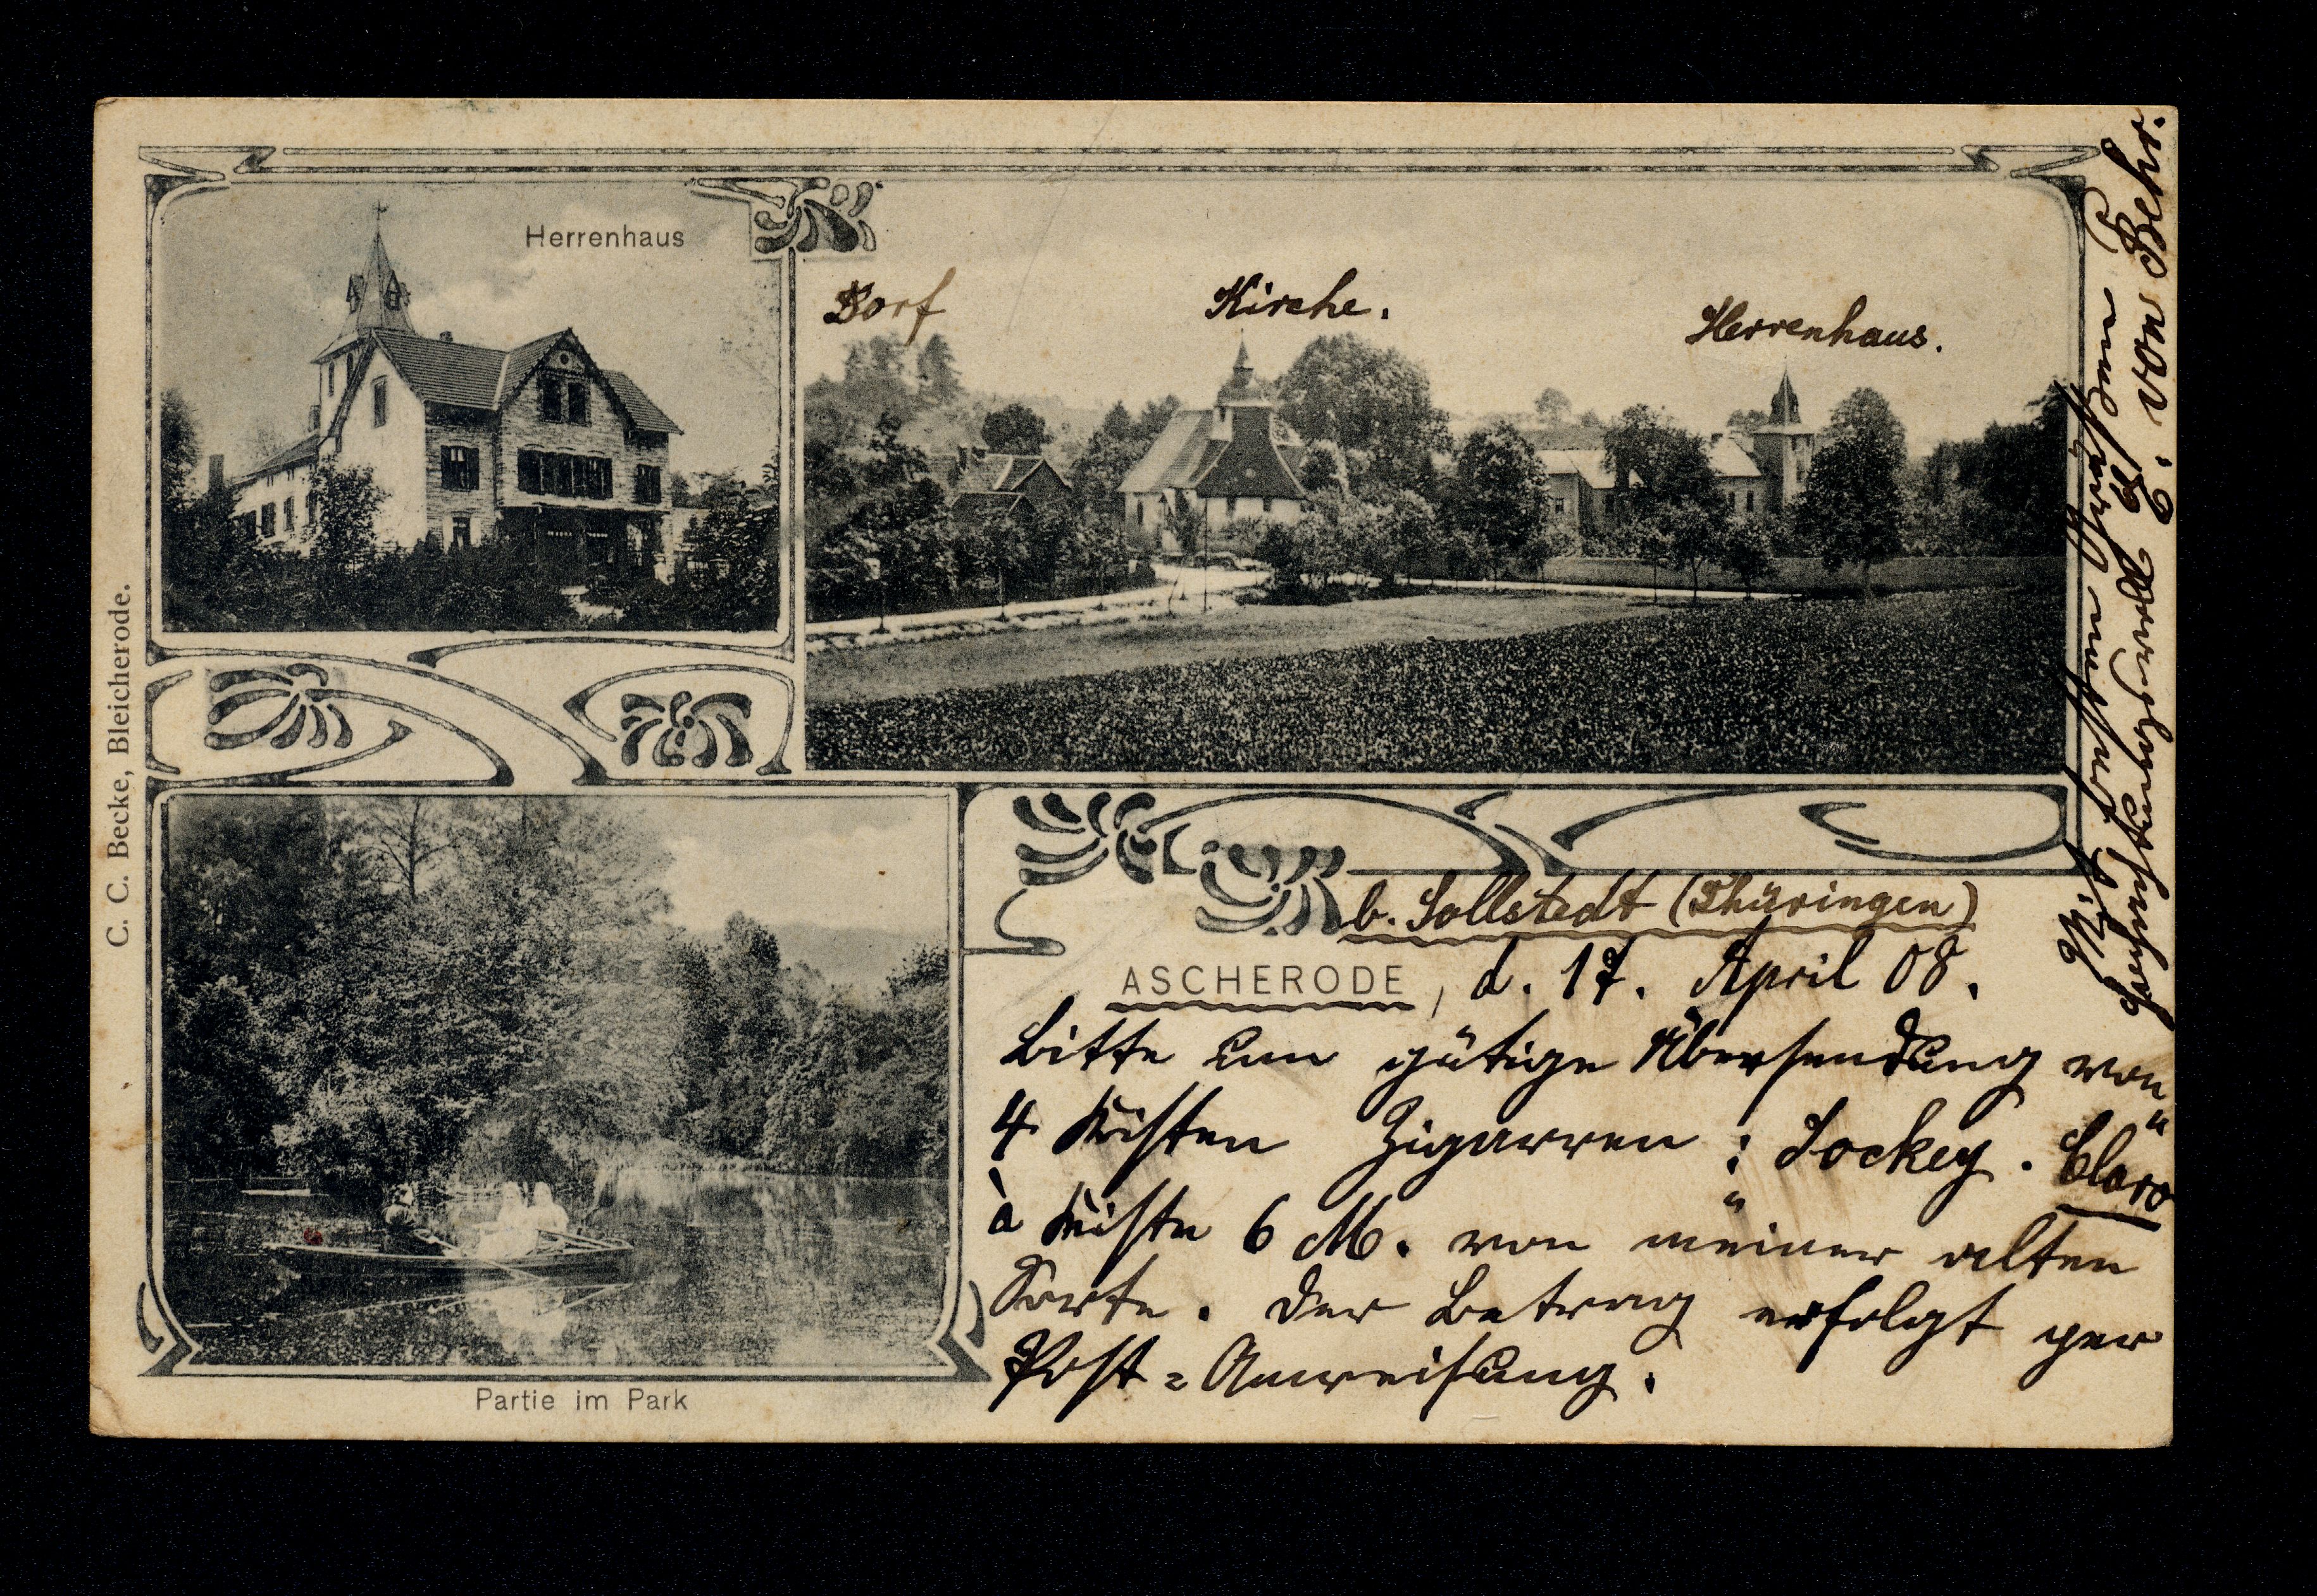 Herrenhaus
Dorf
Kirche.
Herrenhaus.
C. C. Becke, Bleicherode.
Partie im Park
b. Sollstedt (Thüringen)
ASCHERODE, d. 17. April 08.
Bitte um gütige Übersendung von
4 Kisten Zigarren: "Jockey. Claro"
à Kiste 6 M. von meiner alten
Sorte. Der Betrag erfolgt per
Post=Anweisung.
Hochachtungsvoll
E. von Behr.